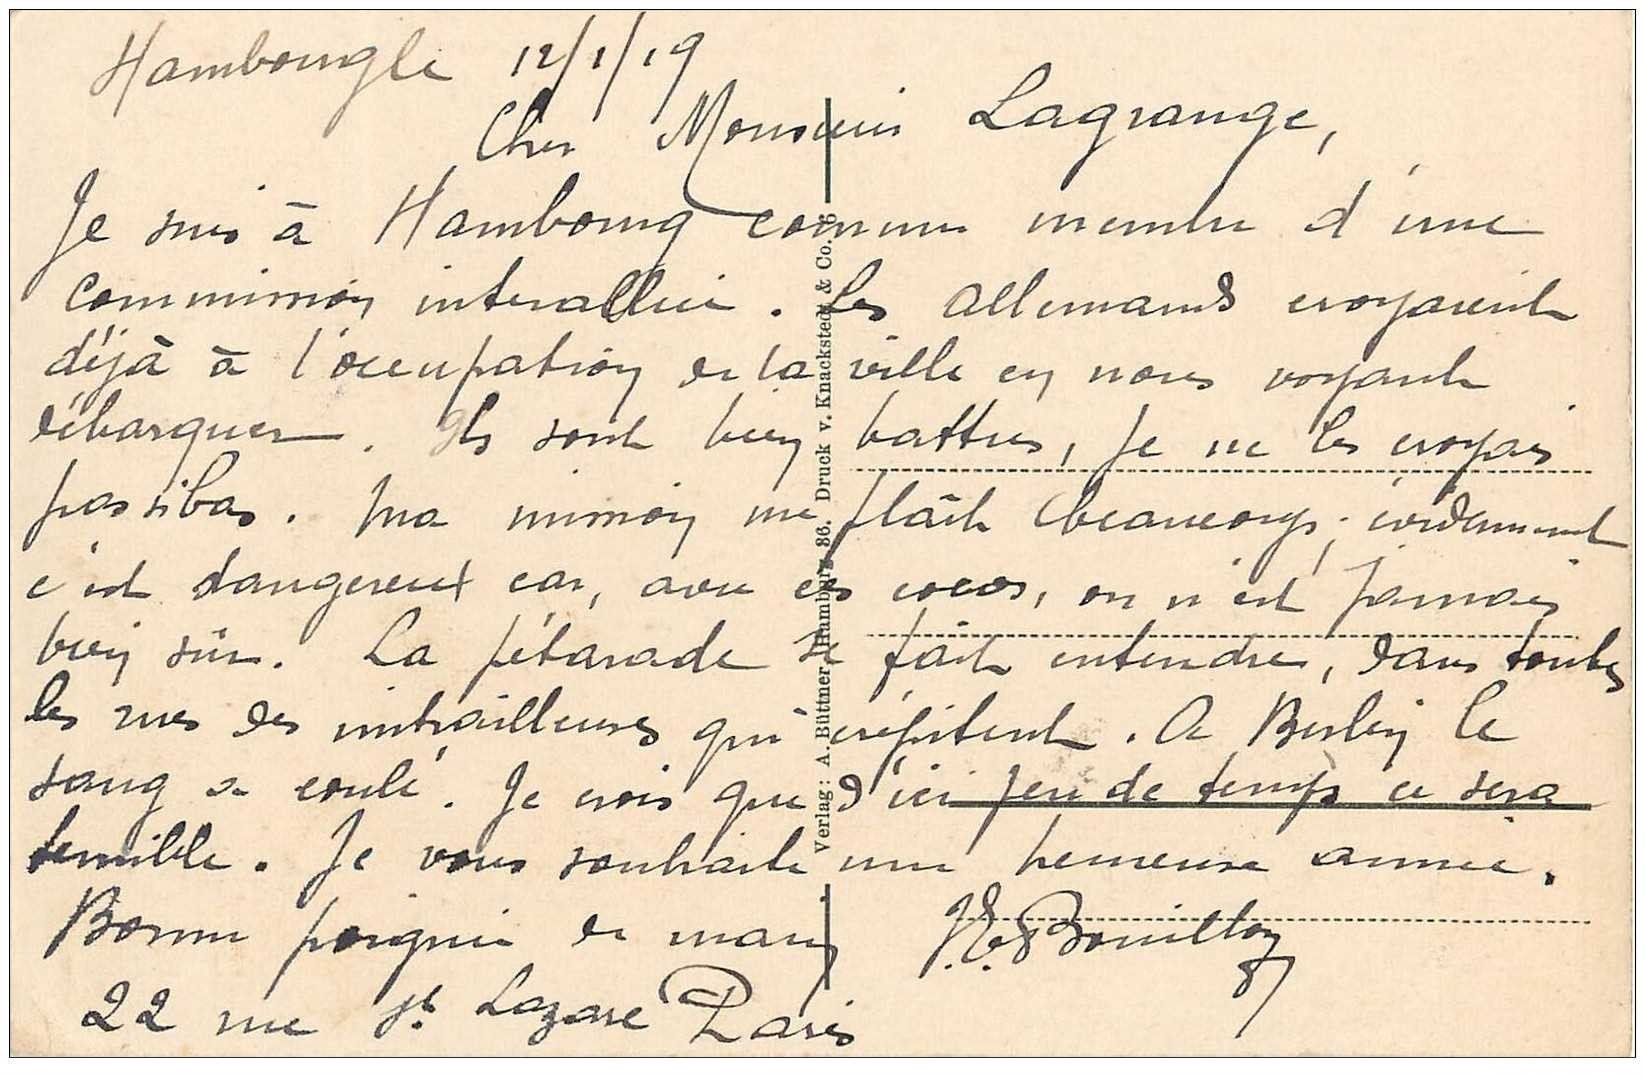 Hambourg le 12/1/19
Cher Monsieur Lagrange,
Je suis à Hambourg comme membre d'une
commission interalliée. Les allemands croyaient
déjà à l'occupation de la ville en nous voyant
débarquer. Ils sont bien battus, je ne les croyais
pas si bas. Ma mission me plaît beaucoup; évidemment
c'est dangereux car, avec ces cocos, on n'est jamais
bien sûr. La pétarade se fait entendre, dans toutes
les rues des mitrailleuses qui crépitent. A Berlin le
sang a coulé. Je crois que d'ici peu de temps ce sera
terrible. Je vous souhaite une heureuse année.
Bonne poignée de main J. E. Bouillon
22 rue St. Lazare Paris
Verlag: A. Büttner, Hamburg 36. Druck v. Knackstedt & Co.